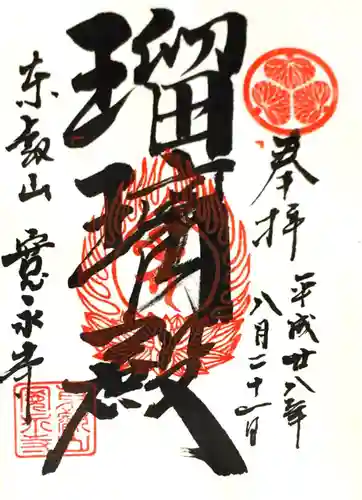 奉拝
平成廿八年
八月二十一日
瑠璃殿
東叡山
寛永寺